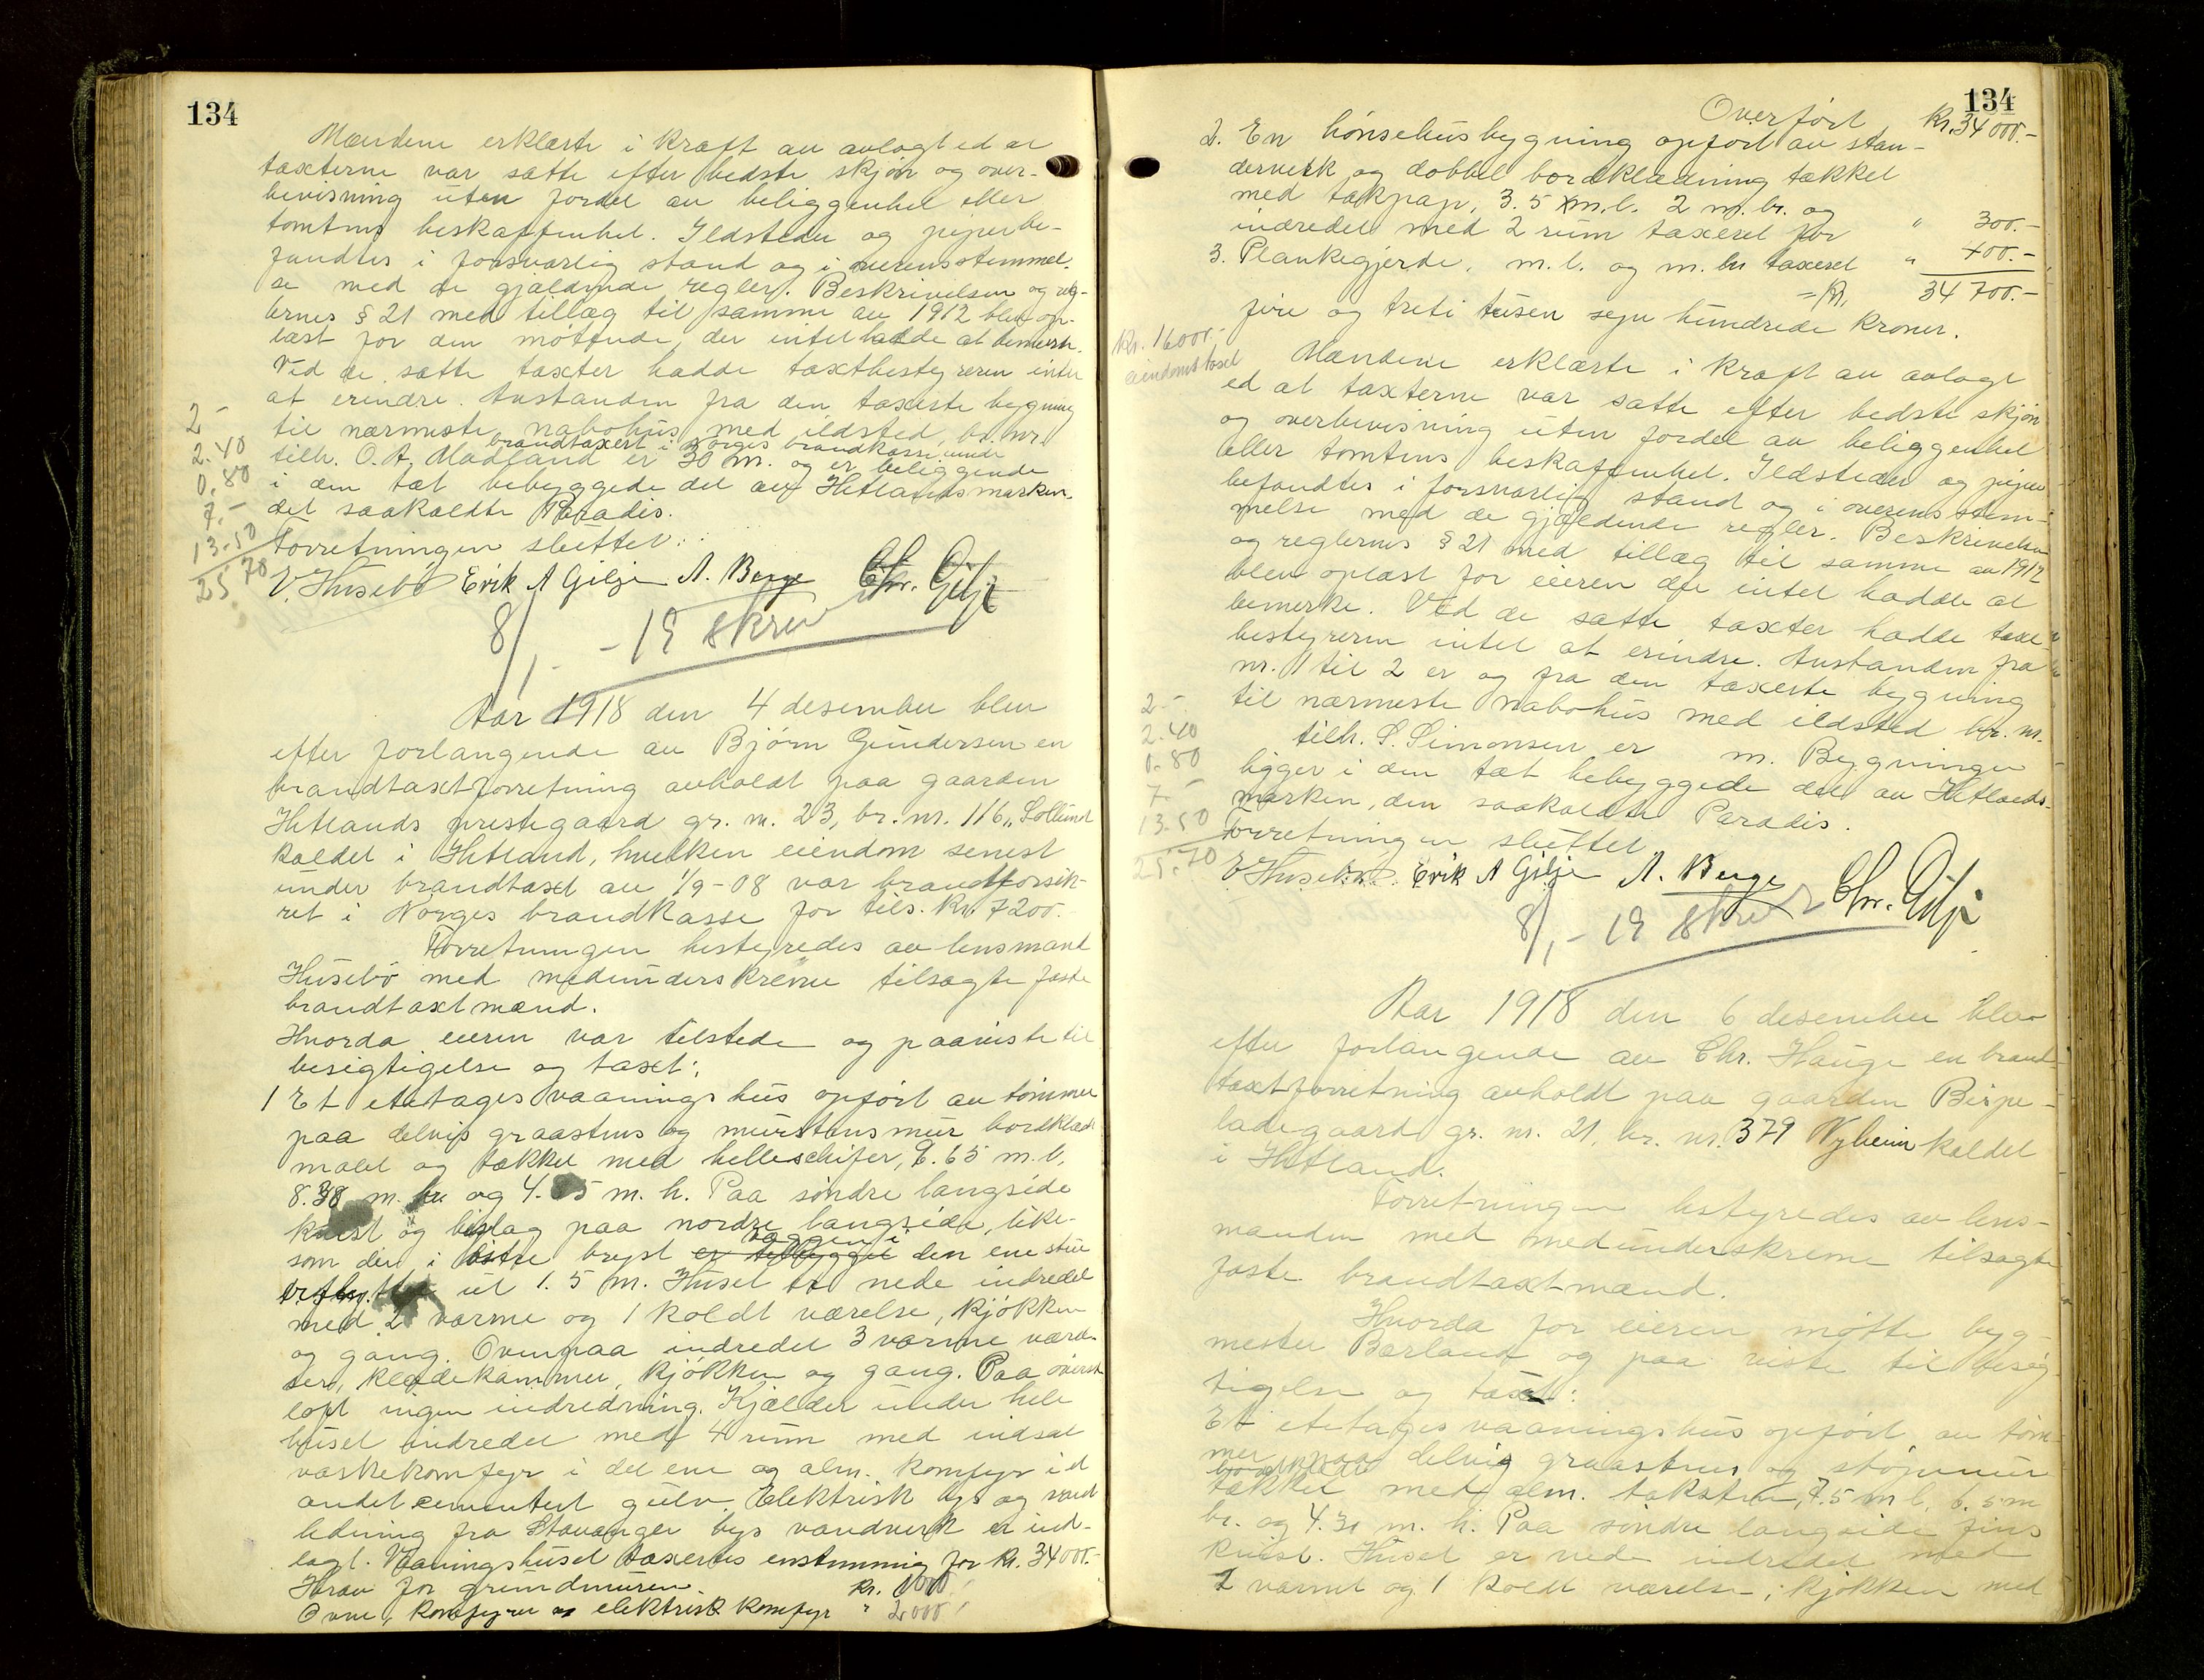 134
Mændene erklærte i kraft av avlagt ed at
taxterne var satte efter bedste skjøn og over-
bevisning uten fordel av beliggenhet eller
tomtens beskaffenhet. Ildsteder og piper be-
fandtes i forsvarlig stand og i overensstemmel-
se med de gjældende regler. Beskrivelsen og reg-
lernes § 21 med tillæg til samme av 1912 blev op-
læst for den møtende, der intet hadde at bemerke.
Ved de satte taxter hadde taxtbestyreren intet
at erindre. Avstanden fra den taxerte bygning
til nærmeste nabohus med ildsted, br. nr.
brandtaxert i Norges brandkasse
tilh. O. A. Madland er 30 m. og er beliggende
i den tæt bebyggede del av Hetlandsmarken,
det saakaldte Paradis.
Forretningen sluttet:
2 -
2.40
0.80
7.-
13.50
25.70
V. Husebø Erik A Gilje A. Berge Chr. Gilje
8/1 - 19 skrev
Aar 1918 den 4 desember blev
efter forlangende av Bjørn Gundersen en
brandtaxtforretning avholdt paa gaarden
Hetlands prestegaard gr. nr. 23, br. nr. 116 „Sollund
kaldet i Hetland, hvilken eiendom senest
under brandtaxt av 1/9-08 var brandforsik-
ret i Norges brandkasse for tils. kr. 7200.-
Forretningen bestyredes av lensmand
Husebø med medunderskrevne tilsagte faste
brandtaxtmænd.
Hvorda eieren var tilstede og paaviste til
besigtigelse og taxt:
1 Et etetages vaaningshus opført av tømmer
paa delvis graastens og murstensmur bordklædt
malet og tækket med helleskifer, 9.65 m. l.
8.38 m. br. og 4. 5 m. h. Paa søndre langside
kvist og bislag paa nordre langside, like-
som den i østre bryst væggen i den ene stue
ut 1.5 m. Huset er nede indredet
med 2 varme og 1 koldt værelse, kjøkken
og gang. Ovenpaa indredet 3 varme værel-
ser, klædekammer, kjøkken og gang. Paa øverste
loft ingen indredning. Kjælder under hele
huset indredet med 4 rum med indsat
vaskekomfyr i det ene og alm. komfyr i et
andet cementert gulv. Elektrisk lys og vand-
ledning fra Stavanger bys vandverk er ind-
lagt. Vaaningshuset taxertes enstemmig for kr. 34000.-
Herav for grundmuren. kr. 1000.-
Ovne, komfyrer og elektrisk komfyr " 2000.-
134
Overført kr. 34000.-
2. En hønsehusbygning opført av stan-
derverk og dobbel bordklædning tækket
med takpap, 3.5 m. l. 2 m. br. og
indredet med 2 rum taxeret for " 300.-
3. Plankegjerde, m. l. og m. br. taxeret " 400.-
= Kr. 34 700.-
fire og treti tusen syv hundrede kroner.
Kr. 16000.-
eiendomstaxt
Mændene erklærte i kraft av avlagt
ed at taxterne var satte efter bedste skjøn
og overbevisning uten fordel av beliggenhet
eller tomtens beskaffenhet. Ildsteder og piper
befandtes i forsvarlig stand og i overensstem-
melse med de gjældende regler. Beskrivelsen
og reglernes § 21 med tillæg til samme av 1912
blev oplæst for eieren der intet hadde at
bemerke. Ved de satte taxter hadde taxt-
bestyreren intet at erindre. Avstanden fra
nr. 1 til 2 er og fra den taxerte bygning
til nærmeste nabohus med ildsted br. nr.
tilh. S. Simonsen er m. Bygningen
ligger i den tæt bebyggede del av Hetlands-
marken, den saakaldte Paradis.
Forretningen sluttet
2 -
2.40
0.80
7.-
13.50
25.70
V Husebø Erik A Gilje A. Berge Chr. Gilje
8/1 - 19 skrev
Aar 1918 den 6 desember blev
efter forlangende av Chr. Hauge en brand-
taxtforretning avholdt paa gaarden Bispe-
ladegaard gr. nr. 21, br. nr. 379 Nyheim kaldet
i Hetland.
Forretningen bestyredes av lens-
manden med medunderskrevne tilsagte
faste brandtaxtmænd.
Hvorda for eieren møtte byg-
mester Børland og paa viste til besig-
tigelse og taxt:
Et etetages vaaningshus opført av tøm-
mer paa delvis graastens og støpmur
bordklædt
tækket med alm. taksten, 7.5 m l, 6.5 m
br. og 4.30 m. h. Paa søndre langside fins
kvist. Huset er nede indredet med
2 varmt og 1 koldt værelse, kjøkken med